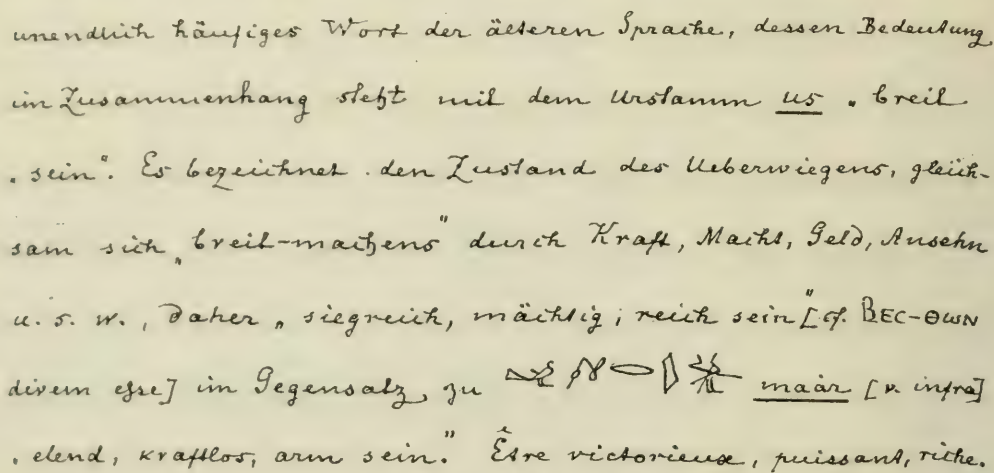 unendlich häufiges Wort der älteren Sprache, dessen Bedeutung
im Zusammenhang steht mit dem Urstamm us „breit
„sein“. Es bezeichnet den Zustand des Ueberwiegens, gleich-
sam sich „breit-machens“ durch Kraft, Macht, Geld, Ansehn
u. s. w., daher „siegreich, mächtig, reich sein“ [cf. ⲂⲈⲤ-ⲐⲰⲚ
divem esse] im Gegensatz zu maàr [v. infra]
„elend, kraftlos, arm sein.“ Être victorieux, puissant, riche.